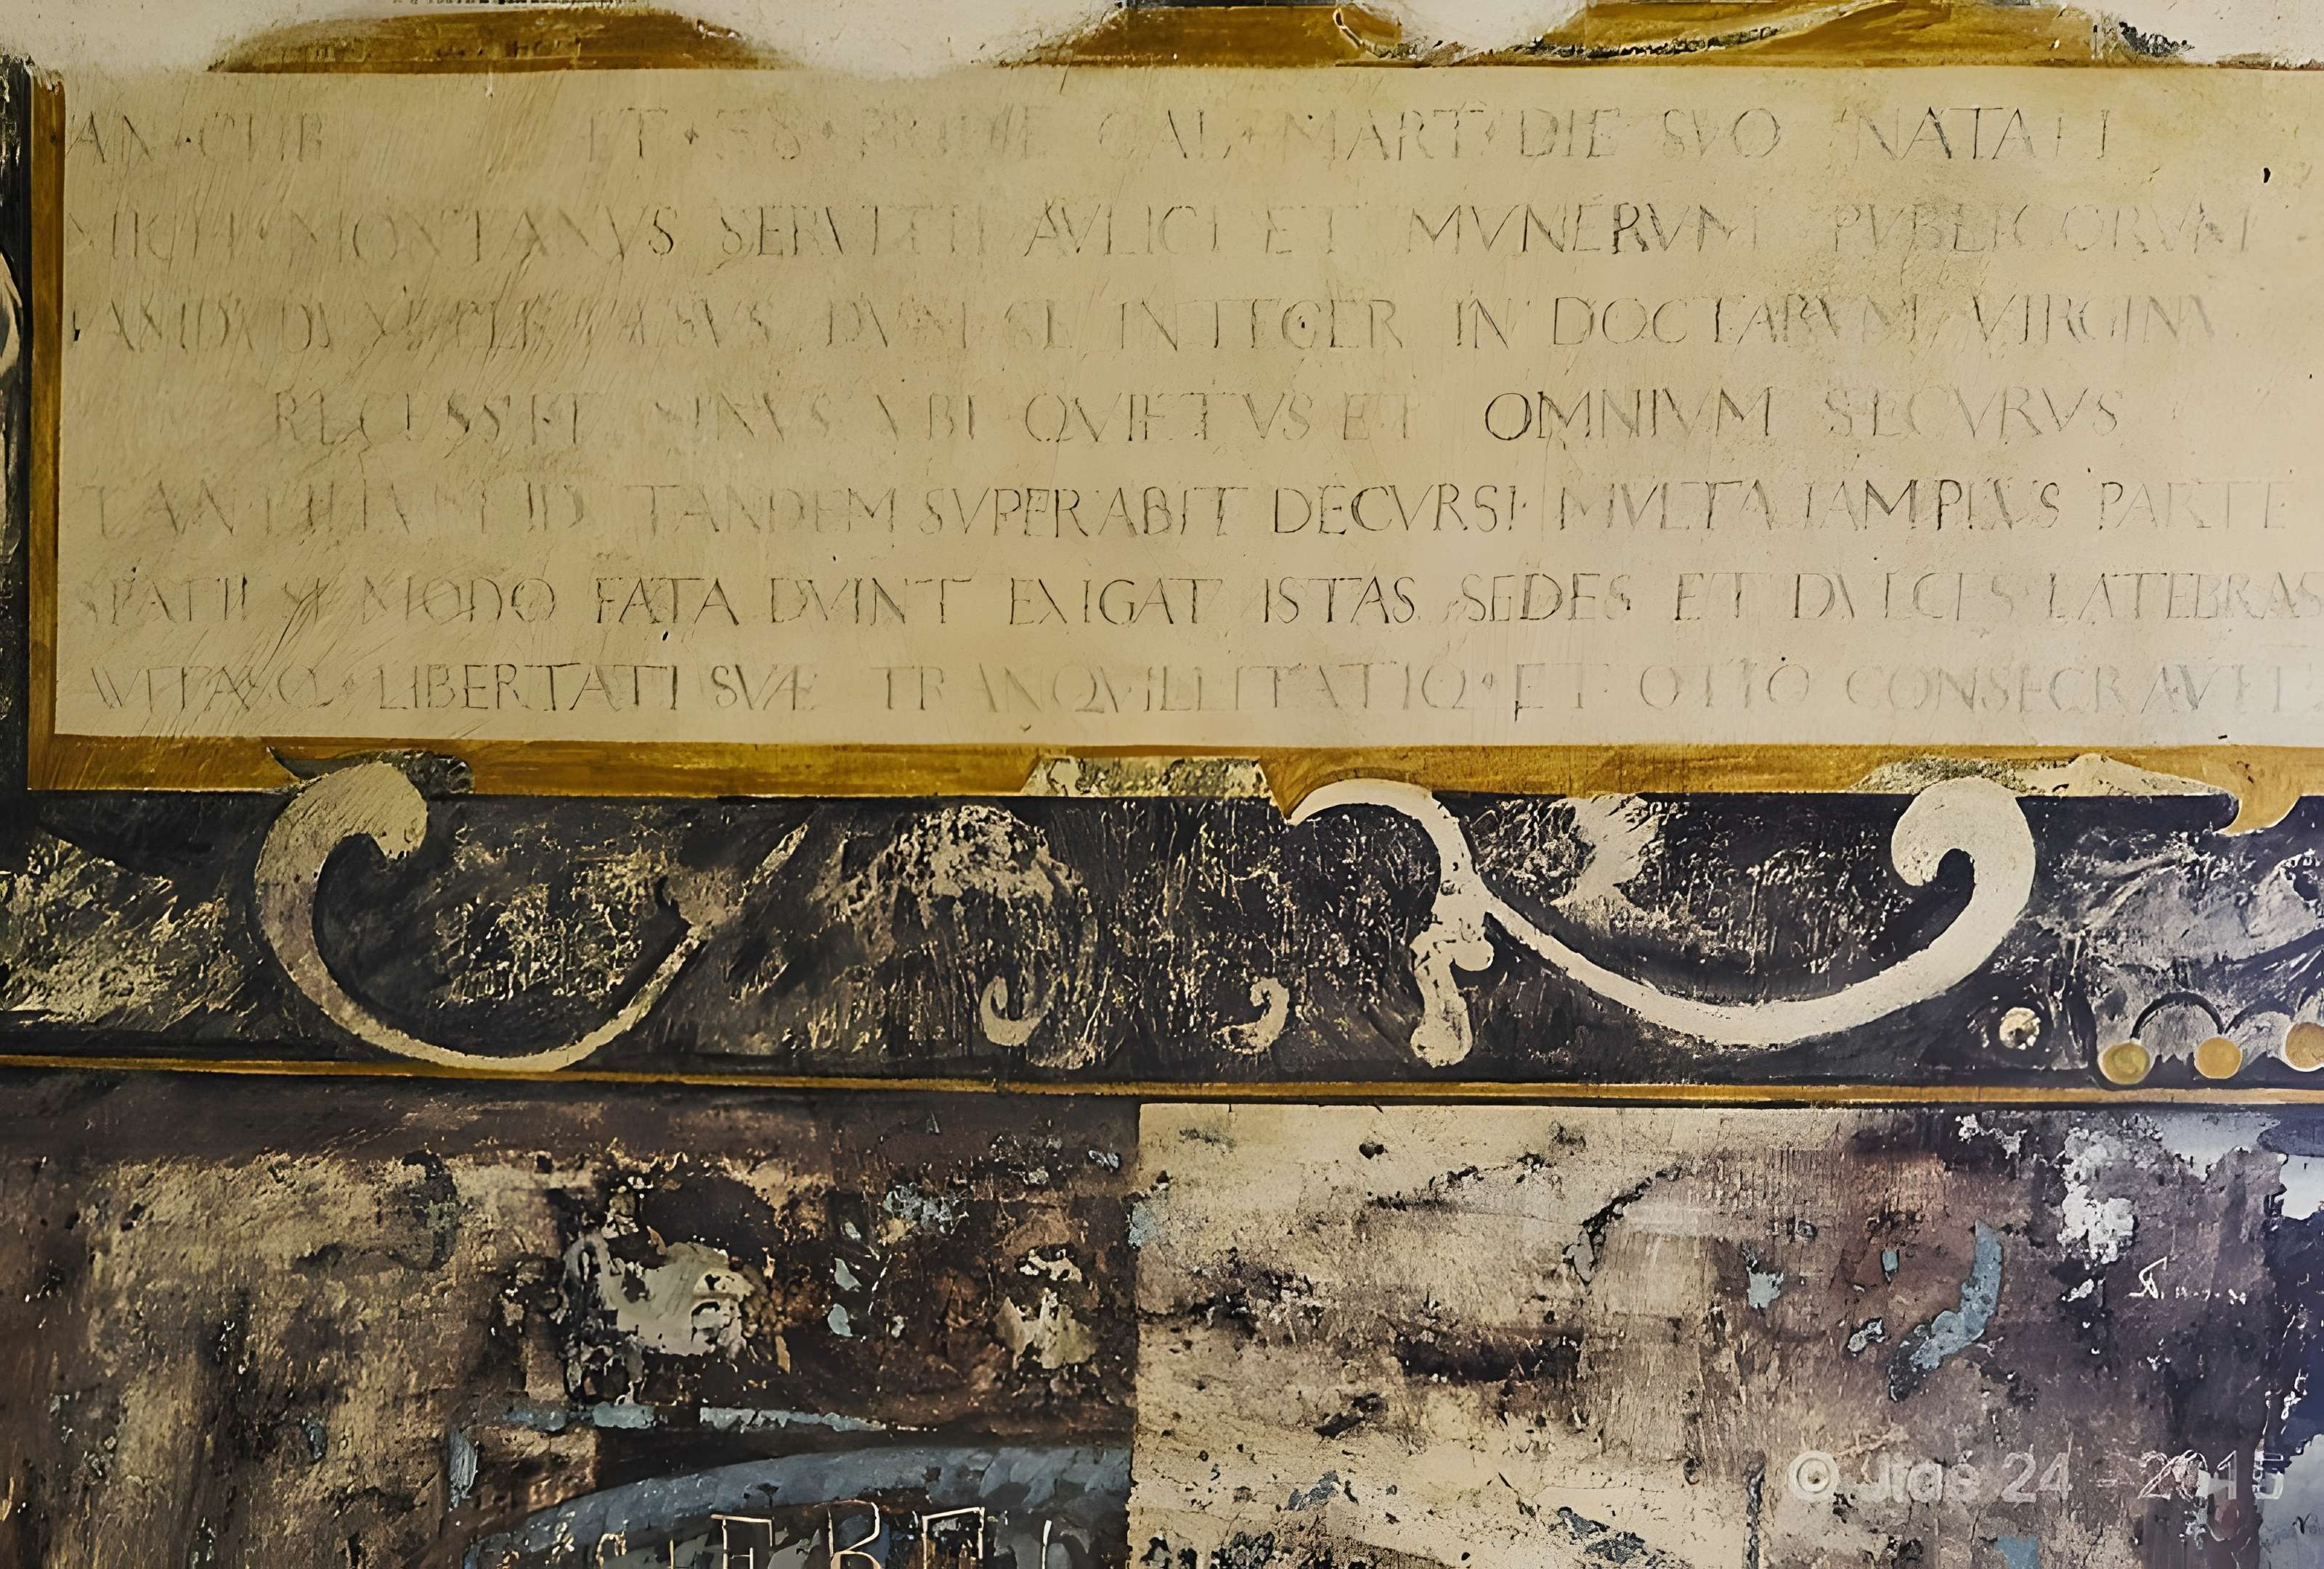 AN · CHR ET · 38 · PRIDIE CAL · MART · DIE SVO NATALI
MICH · MONTANVS SERVITII AVLICI ET MVNERVM PVBLICORVM
DVM SE INTEGER IN DOCTARVM VIRGINV
RECESSET SINVS VBI QVIETVS ET OMNIVM SECVRVS
ID TANDEM SVPERABIT DECVRSI MVLTA IAM PLVS PARTE
SPATII SI MODO FATA DVINT EXIGAT ISTAS SEDES ET DVLCES LATEBRAS
AVITASQ · LIBERTATI SVÆ TRANQVILLITATIQ · ET OTIO CONSECRAVIT
© Jias 24 - 2015